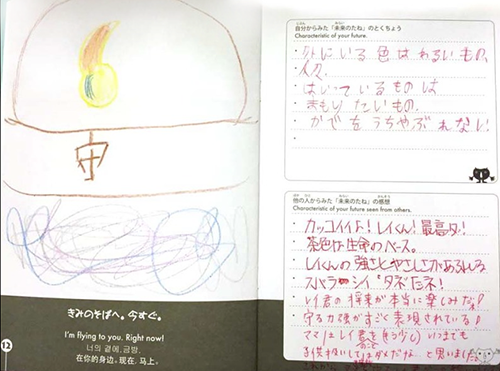 守
きみのそばへ。今すぐ。
I'm flying to you. Right now!
너의 곁에, 금방.
在你的身边。现在。马上。
12
自分からみた「未来のたね」のとくちょう
Characteristic of your future.
・外にいる色はわるいもの、
・人々、
・はいっているものは
・まもりたいもの.
・かべをうちやぶれない!
他の人からみた「未来のたね」の感想
Characteristic of your future seen from others.
・カッコイイよ!レイくん!最高タ!
・茶色は生命のベース。
・レイくんの強さとやさしさがあふれる
・スバラーシイ タネだネ!
・レイ君の将来が本当に楽しみだね♪
・守る力強がすごく表現されている♪
・ママはレイ君を(もう少し)いつまでも
・子供扱いしてはダメだな、と思いました